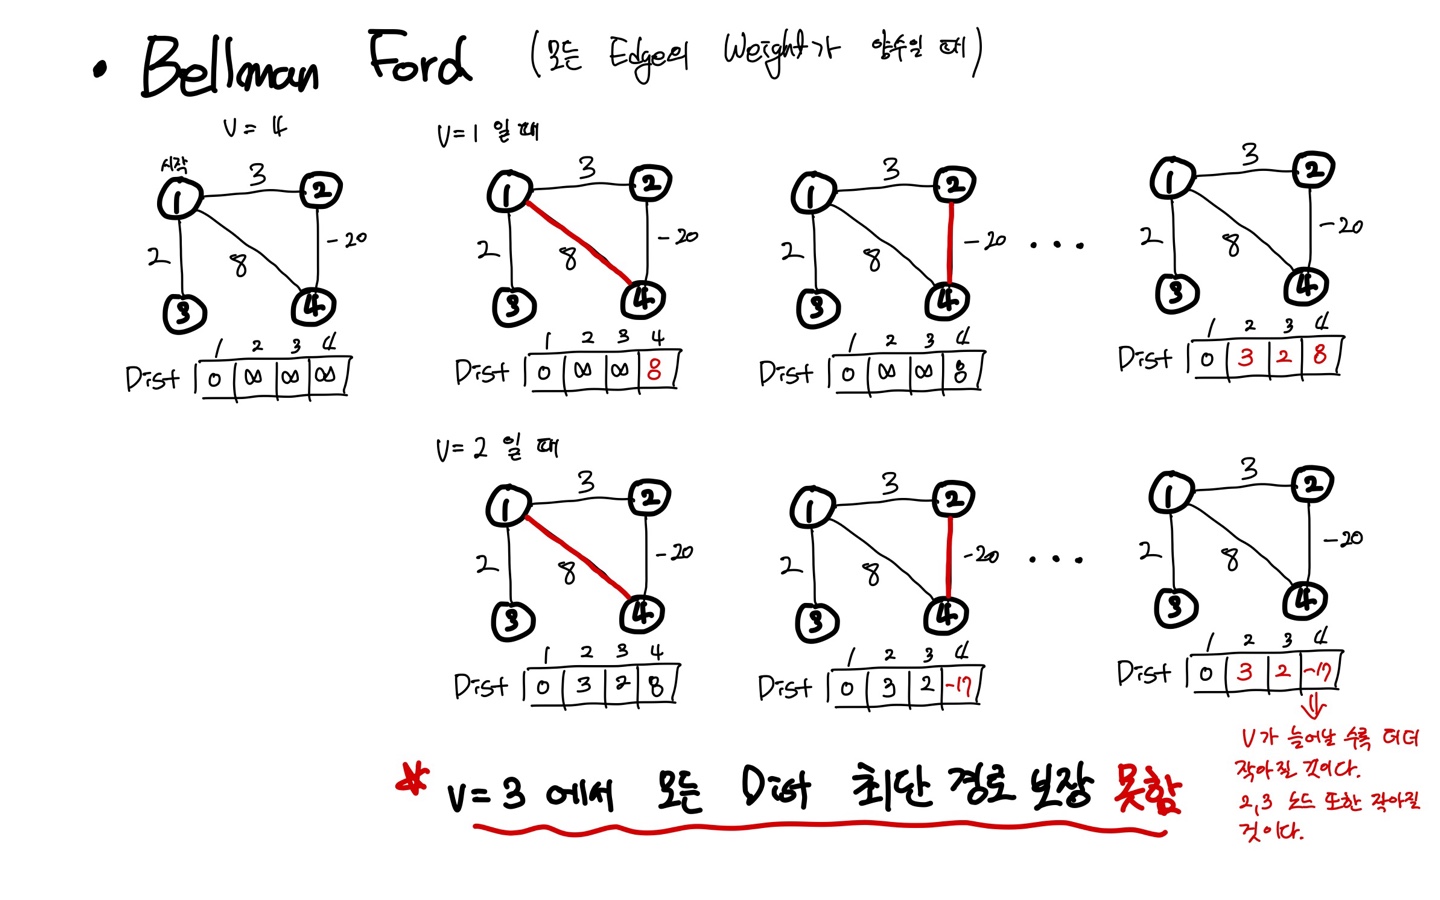 • Bellman Ford (모든 Edge의 Weight가 양수일 때)
V = 4
시작
1 3 2
2 8 -20
3 4
1 2 3 4
Dist 0 ∞ ∞ ∞
V=1 일 때
1 3 2
2 8 -20
3 4
1 2 3 4
Dist 0 ∞ ∞ 8
1 3 2
2 8 -20 ...
3 4
1 2 3 4
Dist 0 ∞ ∞ 8
1 3 2
2 8 -20
3 4
1 2 3 4
Dist 0 3 2 8
V=2 일 때
1 3 2
2 8 -20
3 4
1 2 3 4
Dist 0 3 2 8
1 3 2
2 8 -20 ...
3 4
1 2 3 4
Dist 0 3 2 -17
1 3 2
2 8 -20
3 4
1 2 3 4
Dist 0 3 2 -17
V가 늘어날 수록 더더
작아질 것이다.
2,3 노드 또한 작아질
것이다.
* V=3 에서 모든 Dist 최단 경로 보장 못함